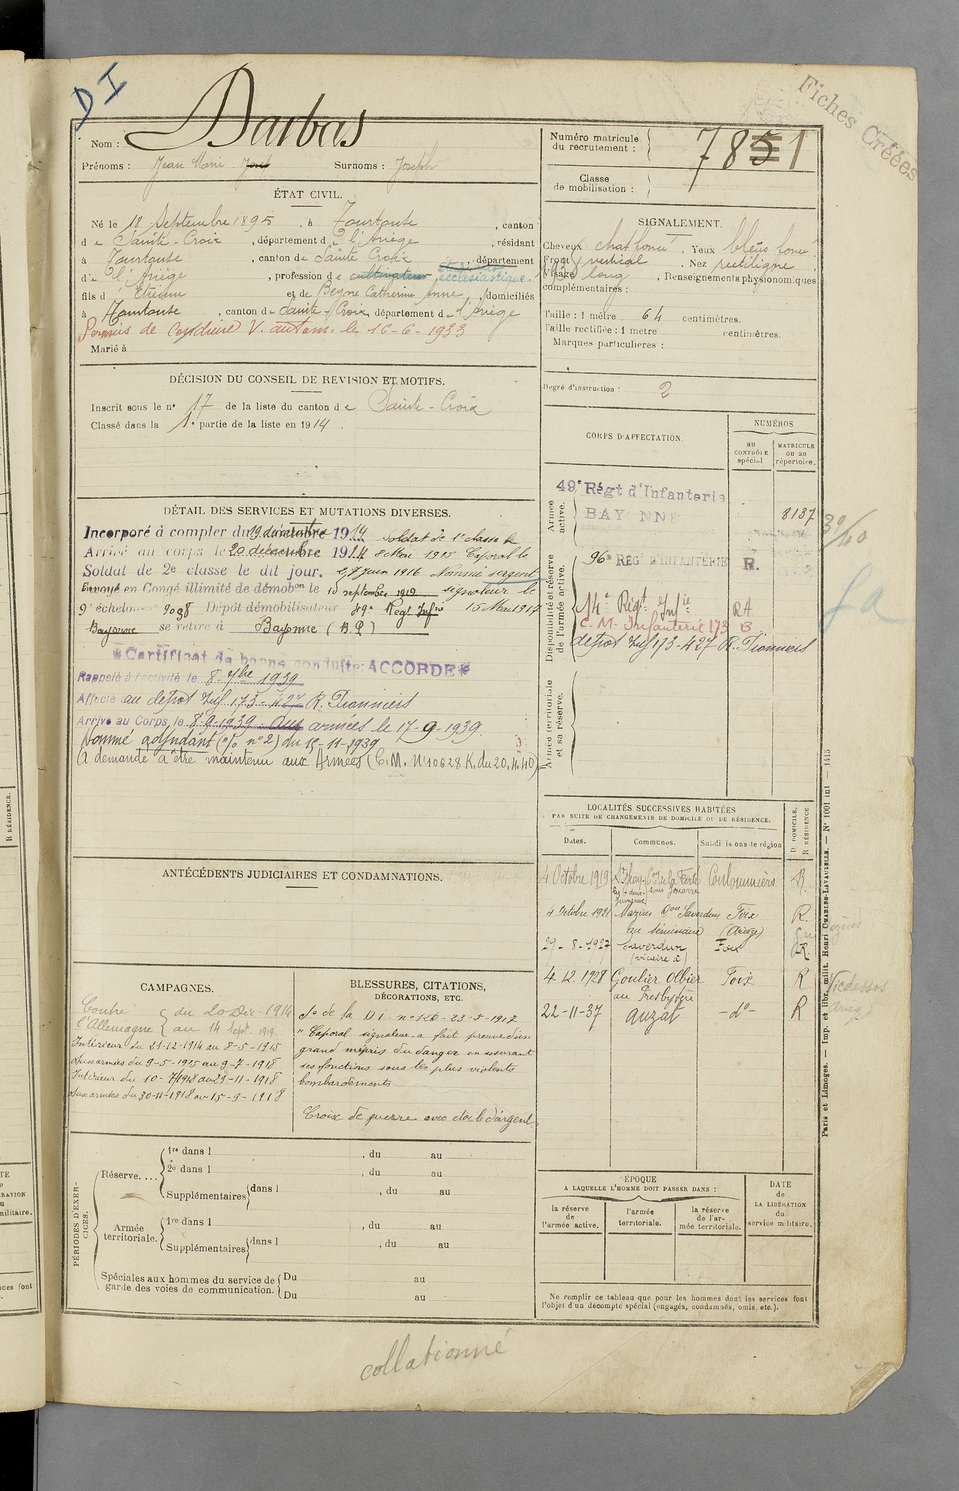 D I
Barbas
Nom :
Prénoms : Jean Marie José Surnoms : Joseph
Numéro matricule du recrutement : 7851
Classe de mobilisation :
Fiches Créées
ÉTAT CIVIL.
Né le 18 Septembre 1895, à Tourtouse, canton
de Sainte-Croix, département de l'Ariège, résidant
à Tourtouse, canton de Sainte Croix, département
de l'Ariège, profession de cultivateur ecclésiastique.
fils d'Etienne et de Beyne Catherine Anne, domiciliés
à Tourtouse, canton de Sainte-Croix, département de l'Ariège
Permis de conduire V. autom. le 16-6-1933
Marié à
SIGNALEMENT.
Cheveux chat foncé. Yeux bleus foncé
Front vertical. Nez rectiligne
Visage long. Renseignements physionomiques
complémentaires :
Taille : 1 mètre 64 centimètres.
Taille rectifiée : 1 mètre centimètres.
Marques particulières :
Degré d'instruction : 2
DÉCISION DU CONSEIL DE REVISION ET MOTIFS.
Inscrit sous le n° 17 de la liste du canton de Sainte-Croix
Classé dans la 1e partie de la liste en 1914.
CORPS D'AFFECTATION.
NUMÉROS
AU CONTRÔLE spécial
MATRICULE OU AU répertoire.
Armée active.
49e Régt d'Infanterie
BAYONNE
8137
Disponibilité et réserve de l'armée active.
96e REG D'INFANTERIE R.
14e Régt Infie RA
C. M. Infanterie 173 B
depot Inf 173-427 R. Pionniers
Armée territoriale et sa réserve.
DÉTAIL DES SERVICES ET MUTATIONS DIVERSES.
Incorporé à compter du 19 décembre 1914 Soldat de 1e classe le
Arrivé au corps le 20 décembre 1914 8 Mai 1915 Caporal le
Soldat de 2e classe le dit jour. 8 Juin 1916 Nommé sergent
Envoyé en Congé illimité de démobon le 10 septembre 1919 signaleur le
9e échelon n° 9098 Dépôt démobilisateur 49e Régt Infie 15 Mai 1917
Bayonne se retire à Bayonne (B. P.)
*Certificat de bonne conduite ACCORDÉ*
Rappelé à l'activité le 8 7bre 1939
Affecté au depot Inf 173-427 R. Pionniers
Arrivé au Corps le 8-9-1939 Aux armées le 17-9-1939.
Nommé adjudant (o/o n°2) du 15-11-1939
A demandé à être maintenu aux Armées (C.M. N°10628 K. du 20.4.40)
ANTÉCÉDENTS JUDICIAIRES ET CONDAMNATIONS.
LOCALITÉS SUCCESSIVES HABITÉES
PAR SUITE DE CHANGEMENTS DE DOMICILE OU DE RÉSIDENCE.
Dates. Communes. Subdivisions de région D DOMICILE. R RÉSIDENCE
4 Octobre 1919 Coulommiers R.
4 Octobre 1921 Mazères Con Saverdun Foix R.
au séminaire (Ariège)
29-8-1927 Saverdun Foix R.
(vicaire à)
4.12.1928 Goulier Olbier Foix R
au Presbytère
22-11-37 Auzat -do- R
CAMPAGNES.
Contre l'Allemagne du 20 Déc. 1914
au 14 Sept 1919
Intérieur du 21-12-1914 au 8-5-1915
Aux armées du 9-5-1915 au 9-7-1918
Intérieur du 10-7-1918 au 29-11-1918
Aux armées du 30-11-1918 au 15-9-1918
BLESSURES, CITATIONS,
DÉCORATIONS, ETC.
de la D I n° 126-23-5-1917
"Caporal signaleur a fait preuve d'un
grand mépris du danger en assurant
ses fonctions sous les plus violents
bombardements
Croix de guerre avec étoile d'argent
PÉRIODES D'EXERCICES.
Réserve.... 1re dans l , du au
2e dans l , du au
Supplémentaires dans l , du au
Armée territoriale. 1re dans l , du au
Supplémentaires dans l , du au
Spéciales aux hommes du service de garde des voies de communication. Du au
Du au
ÉPOQUE
A LAQUELLE L'HOMME DOIT PASSER DANS :
la réserve de l'armée active.
l'armée territoriale.
la réserve de l'armée territoriale.
DATE DE LA LIBÉRATION du service militaire.
Ne remplir ce tableau que pour les hommes dont les services font
l'objet d'un décompte spécial (engagés, condamnés, omis, etc.).
Paris et Limoges. — Imp. et libr. milit. Henri CHARLES-LAVAUZELLE. — N° 1001 int — 1415
collationné